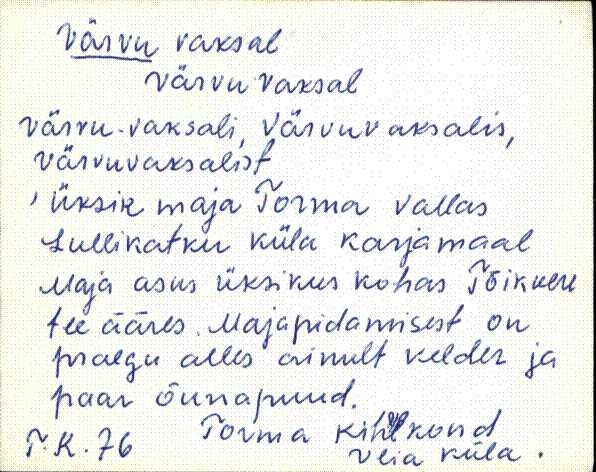 Värvu vaksal
Värvu vaksal
Värvu-vaksali, Värvuvaksalis,
Värvuvaksalist
üksik maja Torma vallas
Lullikatku küla karjamaal
Maja asus üksikus kohas Tõikvere
tee ääres. Majapidamisest on
praegu alles ainult kelder ja
paar õunapuud.
T.K. 76 Torma kihlkond
Veia küla.